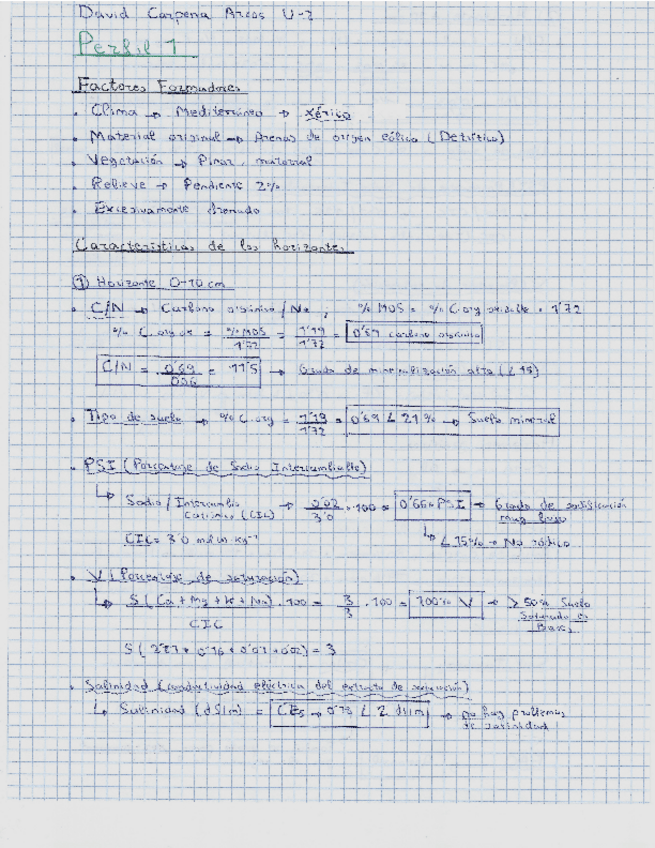 David Carpena Arcos U-2
Perfil 1
Factores Formadores
• Clima → Mediterráneo → Xérico
• Material original → Arenas de origen eólico (Detrítico)
• Vegetación → Pinar, matorral
• Relieve → Pendiente 2%
• Excesivamente drenado
Características de los horizontes
① Horizonte 0-10 cm
• C/N → Carbono orgánico / N ; % MOS = % C.org * 1'72
% C.org = % MOS / 1'72 = 1'19 / 1'72 = 0'69 carbono orgánico
C/N = 0'69 / 0'06 = 11'5 → Grado de mineralización alta (< 15)
• Tipo de suelo → % C.org = 1'19 / 1'72 = 0'69 < 21% → Suelo mineral
• PSI (Porcentaje de Sodio Intercambiable)
↳ Sodio / Intercambio catiónico (CIC) → 0'02 / 3'0 · 100 = 0'66% PSI → Grado de sodificación muy bajo
CIC = 3'0 mol kg⁻¹ ↳ < 15% → No sódico
• V (Porcentaje de saturación)
↳ S (Ca + Mg + K + Na) / CIC · 100 = 3 / 3 · 100 = 100% V → > 50% Suelo Saturado en Bases
S ( 2'87 + 0'16 + 0'01 + 0'02) = 3
• Salinidad (conductividad eléctrica del extracto de saturación)
↳ Salinidad (dS/m) = CEs → 0'19 < 2 dS/m → no hay problemas de salinidad